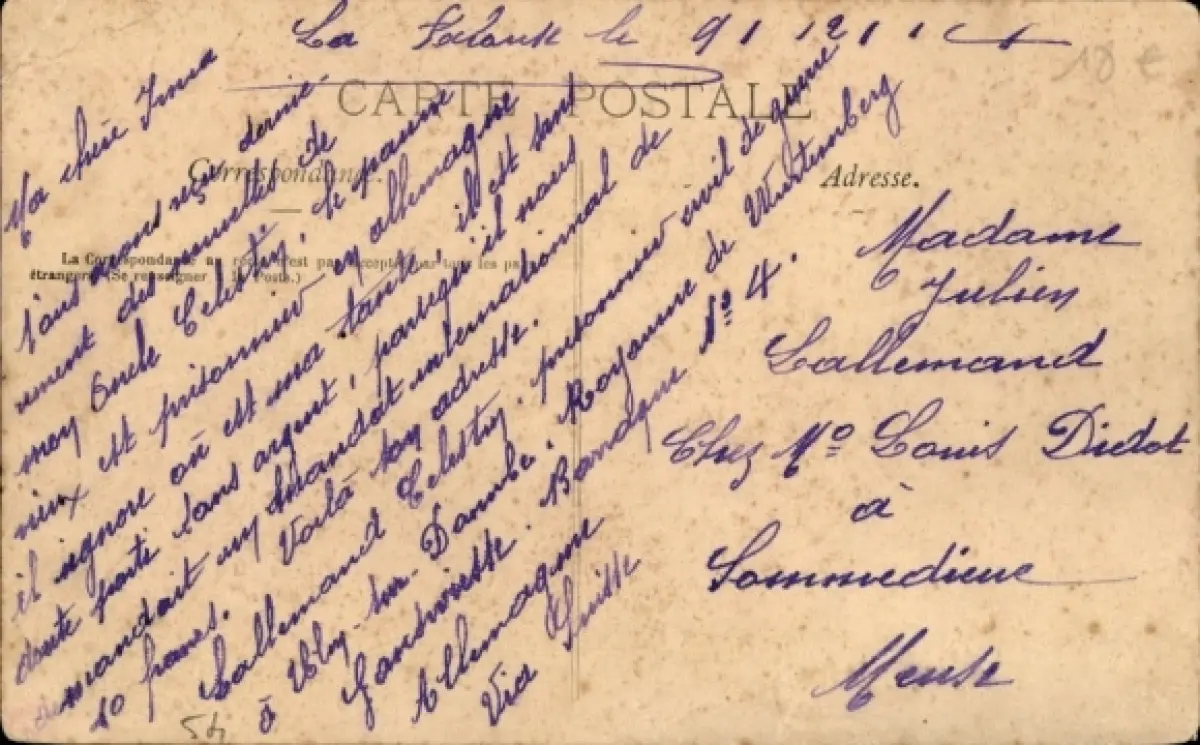 La Falouse le 9 / 12 / 14
CARTE POSTALE
Correspondance.
Adresse.
La Correspondance au recto n'est pas acceptée par tous les pays
étrangers (Se renseigner à la Poste.)
Ma chère Irma
Nous avons reçu derniè-
rement des nouvelles de
mon Oncle Célestin, le pauvre
vieux est prisonnier en allemagne
il ignore où est ma tante, il est sans
doute parti sans argent, parcequ'il nous
demandait un mandat international de
10 francs. Voilà son adresse.
Lallemand Célestin, prisonnier civil de guerre
à Ulm sur Danube. Royaume de Wurtemberg
Baraque No 4.
Allemagne
Via Suisse
Madame
Julien
Lallemand
Chez Mo Louis Didot
à
Sommedieue
Meuse
18 €